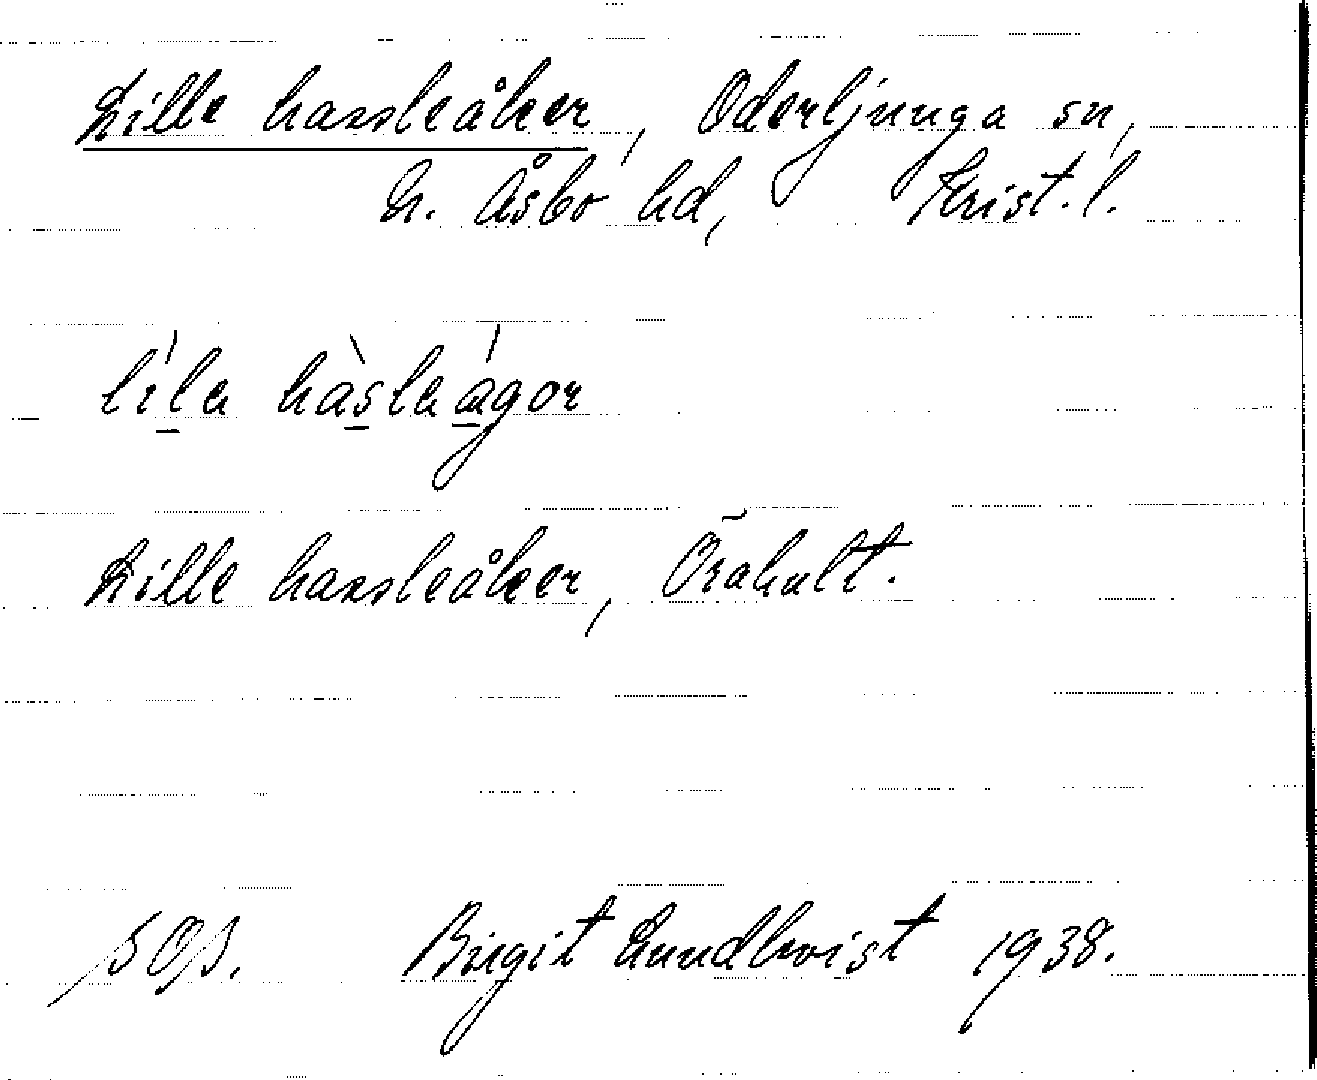 Lille hassleåker, Oderljunga sn,
N. Åsbo hd, Krist. l.
lìla hàslaágor
Lille hassleåker, Örahult.
Birgit Lundkvist 1938.